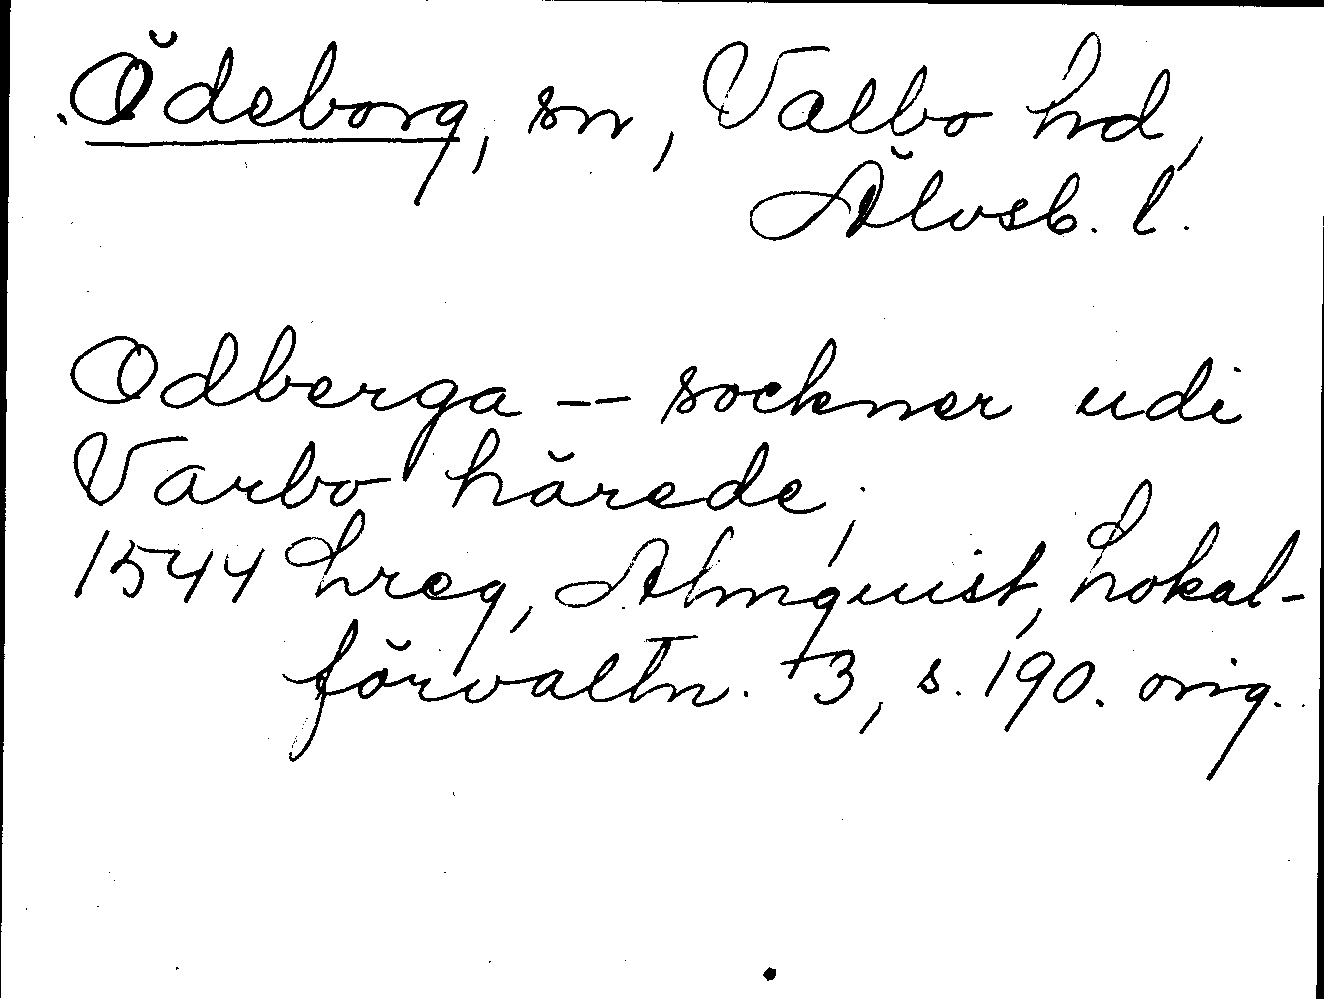 Ödeborg, sn, Valbo hd,
Älvsb. l.
Odberga -- sockner udi
Varbo härede;
1544 Lreg, Almquist, Lokal-
förvaltn. +3, s. 190. orig.